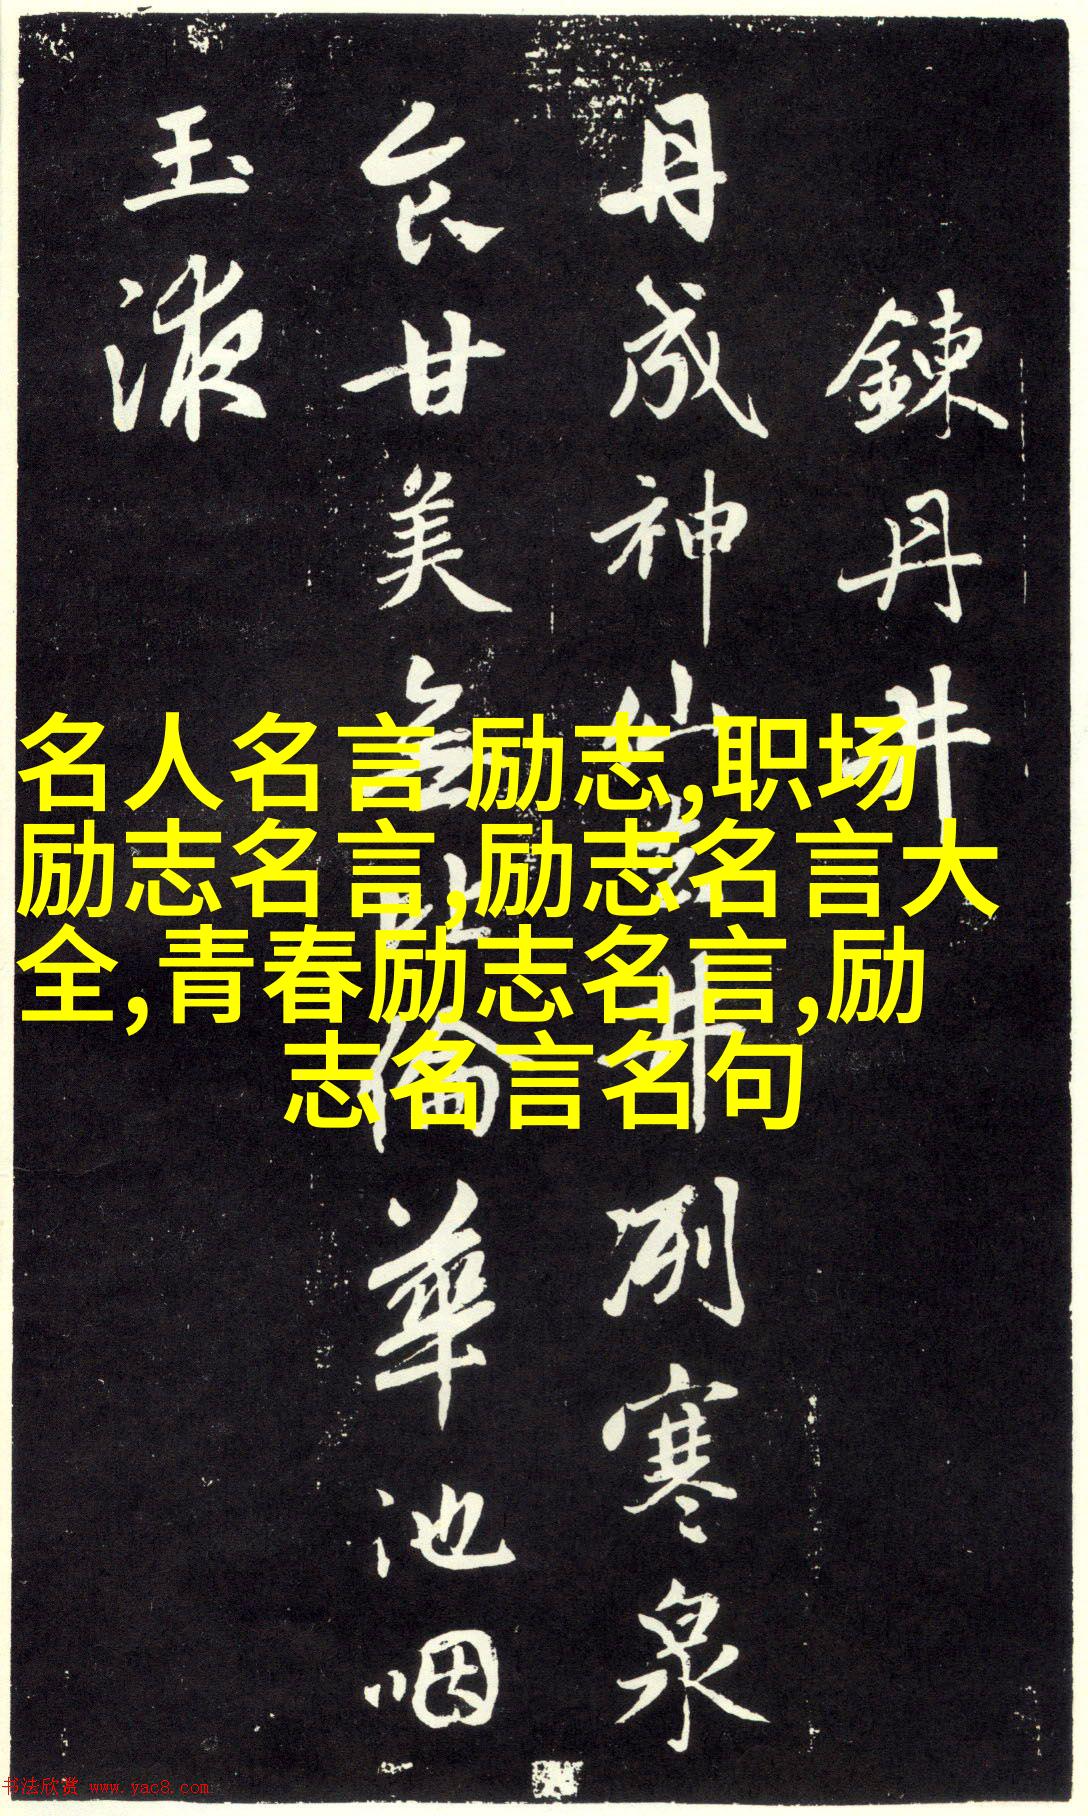 鍊丹井
丹成神仙去井冽寒泉
食甘美無比倫華池咽
玉液
名人名言 励志,职场
励志名言,励志名言大
全,青春励志名言,励
志名言名句
书法欣赏 www.yac8.com